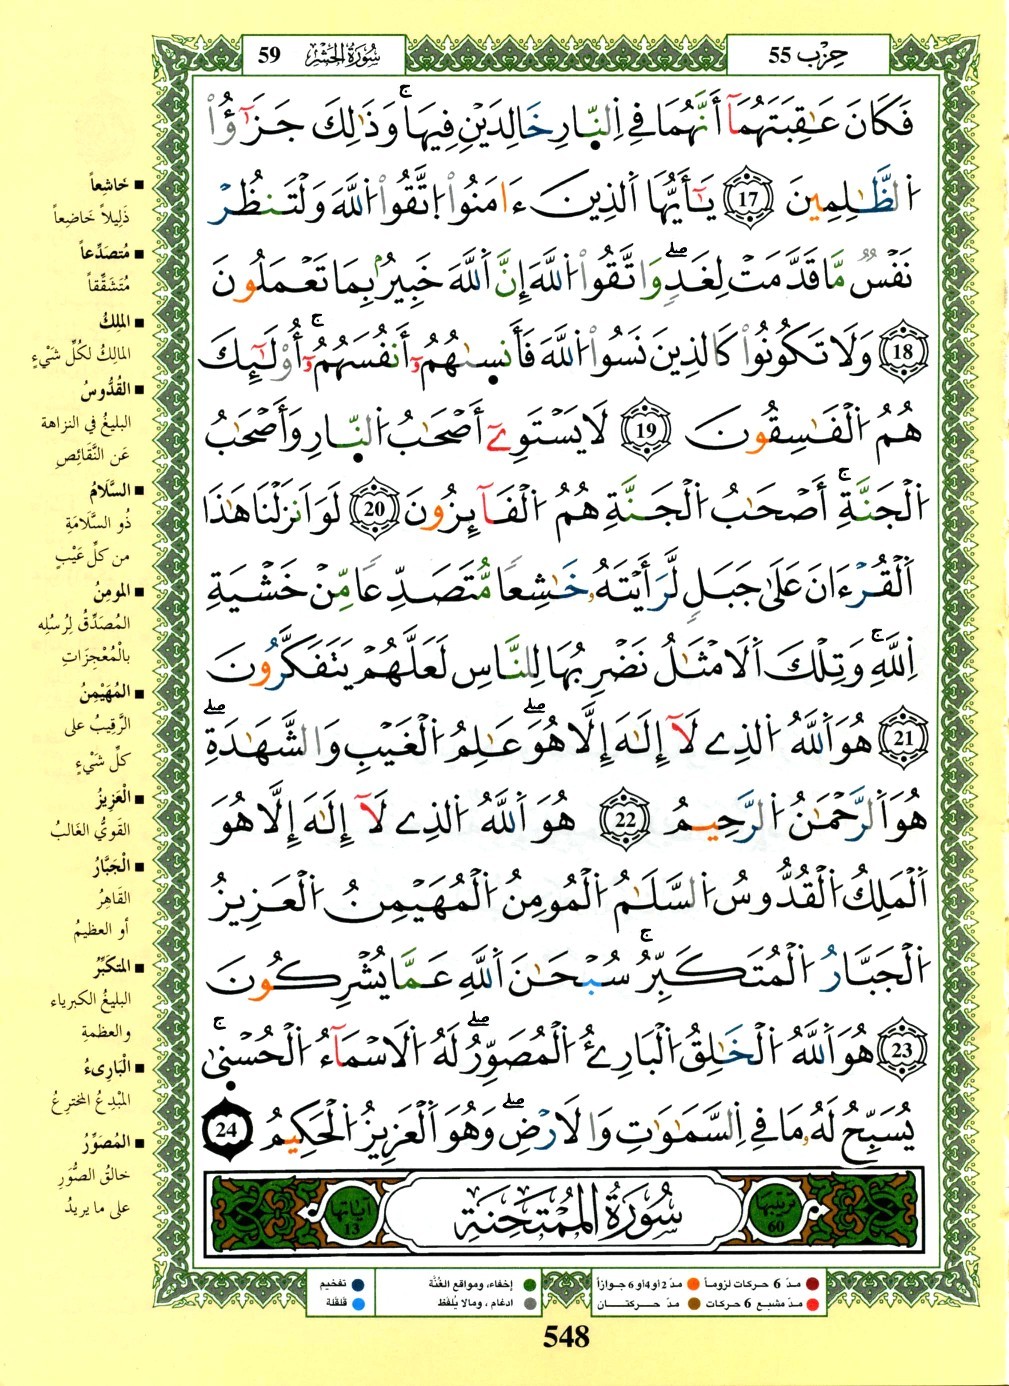 حِزْب 55
سُورَةُ الْحَشْرِ 59
فَكَانَ عَٰقِبَتَهُمَآ أَنَّهُمَا فِي اِ۬لنَّارِ خَٰلِدَيْنِ فِيهَاۚ وَذَٰلِكَ جَزَٰٓؤُاْ
اُ۬لظَّٰلِمِينَ 17 يَٰٓأَيُّهَا اَ۬لذِينَ ءَامَنُواْ اُ۪تَّقُواْ اُ۬للَّهَ وَلْتَنظُرْ
نَفْسٞ مَّا قَدَّمَتْ لِغَدٖۖ وَاتَّقُواْ اُ۬للَّهَ إِنَّ اَ۬للَّهَ خَبِيرُۢ بِمَا تَعْمَلُونَ
18 وَلَا تَكُونُواْ كَالذِينَ نَسُواْ اُ۬للَّهَ فَأَنس۪ىٰهُمُۥٓ أَنفُسَهُمُۥٓۚ أُوْلَٰٓئِكَ
هُمُ اُ۬لْفَٰسِقُونَ 19 لَا يَسْتَوِےٓ أَصْحَٰبُ اُ۬لنّ۪ارِ وَأَصْحَٰبُ
اُ۬لْجَنَّةِۚ أَصْحَٰبُ اُ۬لْجَنَّةِ هُمُ اُ۬لْفَآئِزُونَ 20 لَوَ اَنزَلْنَا هَٰذَا
اَ۬لْقُرْءَانَ عَلَىٰ جَبَلٖ لَّرَأَيْتَهُۥ خَٰشِعاٗ مُّتَصَدِّعاٗ مِّنْ خَشْيَةِ
اِ۬للَّهِۚ وَتِلْكَ اَ۬لَامْثَٰلُ نَضْرِبُهَا لِلنَّاسِ لَعَلَّهُمْ يَتَفَكَّرُونَ
21 هُوَ اَ۬للَّهُ اُ۬لذِے لَآ إِلَٰهَ إِلَّا هُوَۖ عَٰلِمُ اُ۬لْغَيْبِ وَالشَّهَٰدَةِۖ
هُوَ اَ۬لرَّحْمَٰنُ اُ۬لرَّحِيمُ 22 هُوَ اَ۬للَّهُ اُ۬لذِے لَآ إِلَٰهَ إِلَّا هُوَ
اَ۬لْمَلِكُ اُ۬لْقُدُّوسُ اُ۬لسَّلَٰمُ اُ۬لْمُومِنُ اُ۬لْمُهَيْمِنُ اُ۬لْعَزِيزُ
اُ۬لْجَبَّارُ اُ۬لْمُتَكَبِّرُۚ سُبْحَٰنَ اَ۬للَّهِ عَمَّا يُشْرِكُونَ
23 هُوَ اَ۬للَّهُ اُ۬لْخَٰلِقُ اُ۬لْبَارِئُ اُ۬لْمُصَوِّرُۖ لَهُ اُ۬لَاسْمَآءُ اُ۬لْحُسْن۪ىٰۚ
يُسَبِّحُ لَهُۥ مَا فِي اِ۬لسَّمَٰوَٰتِ وَالَارْضِۖ وَهُوَ اَ۬لْعَزِيزُ اُ۬لْحَكِيمُ 24
ترتيبها 60
سُورَةُ الْمُمْتَحِنَةِ
اياتها 13
■ خَاشِعاً
ذَلِيلاً خَاضِعاً
■ مُتصَدِّعاً
مُتَشَقِّقاً
■ المَلِكُ
المَالِكُ لكُلِّ شَيْءٍ
■ القُدُّوسُ
البليغُ في النزاهة
عَن النَّقائِصِ
■ السَّلَامُ
ذُو السَّلَامَةِ
من كلِّ عَيْبٍ
■ المومِنُ
المُصَدِّقُ لِرُسُلِه
بالْمُعْجِزَاتِ
■ المُهَيْمِنُ
الرَّقِيبُ على
كلِّ شَيْءٍ
■ الْعَزِيزُ
القَوِيُّ الغَالبُ
■ الْجَبَّارُ
القَاهِرُ
أو العظيمُ
■ المتكَبِّرُ
البليغُ الكبرياء
والعظمةِ
■ الْبَارِىءُ
المُبْدِعُ المخترِعُ
■ المُصَوِّرُ
خالقُ الصُّوَرِ
على ما يريدُ
مدّ 6 حركات لزوماً
مدّ 2 أو 4 أو 6 جوازاً
إخفاء، ومواقع الغُنَّة
تفخيم
مدّ مشبع 6 حركات
مدّ حركتان
ادغام ، ومالا يُلفَظ
قلقلة
548